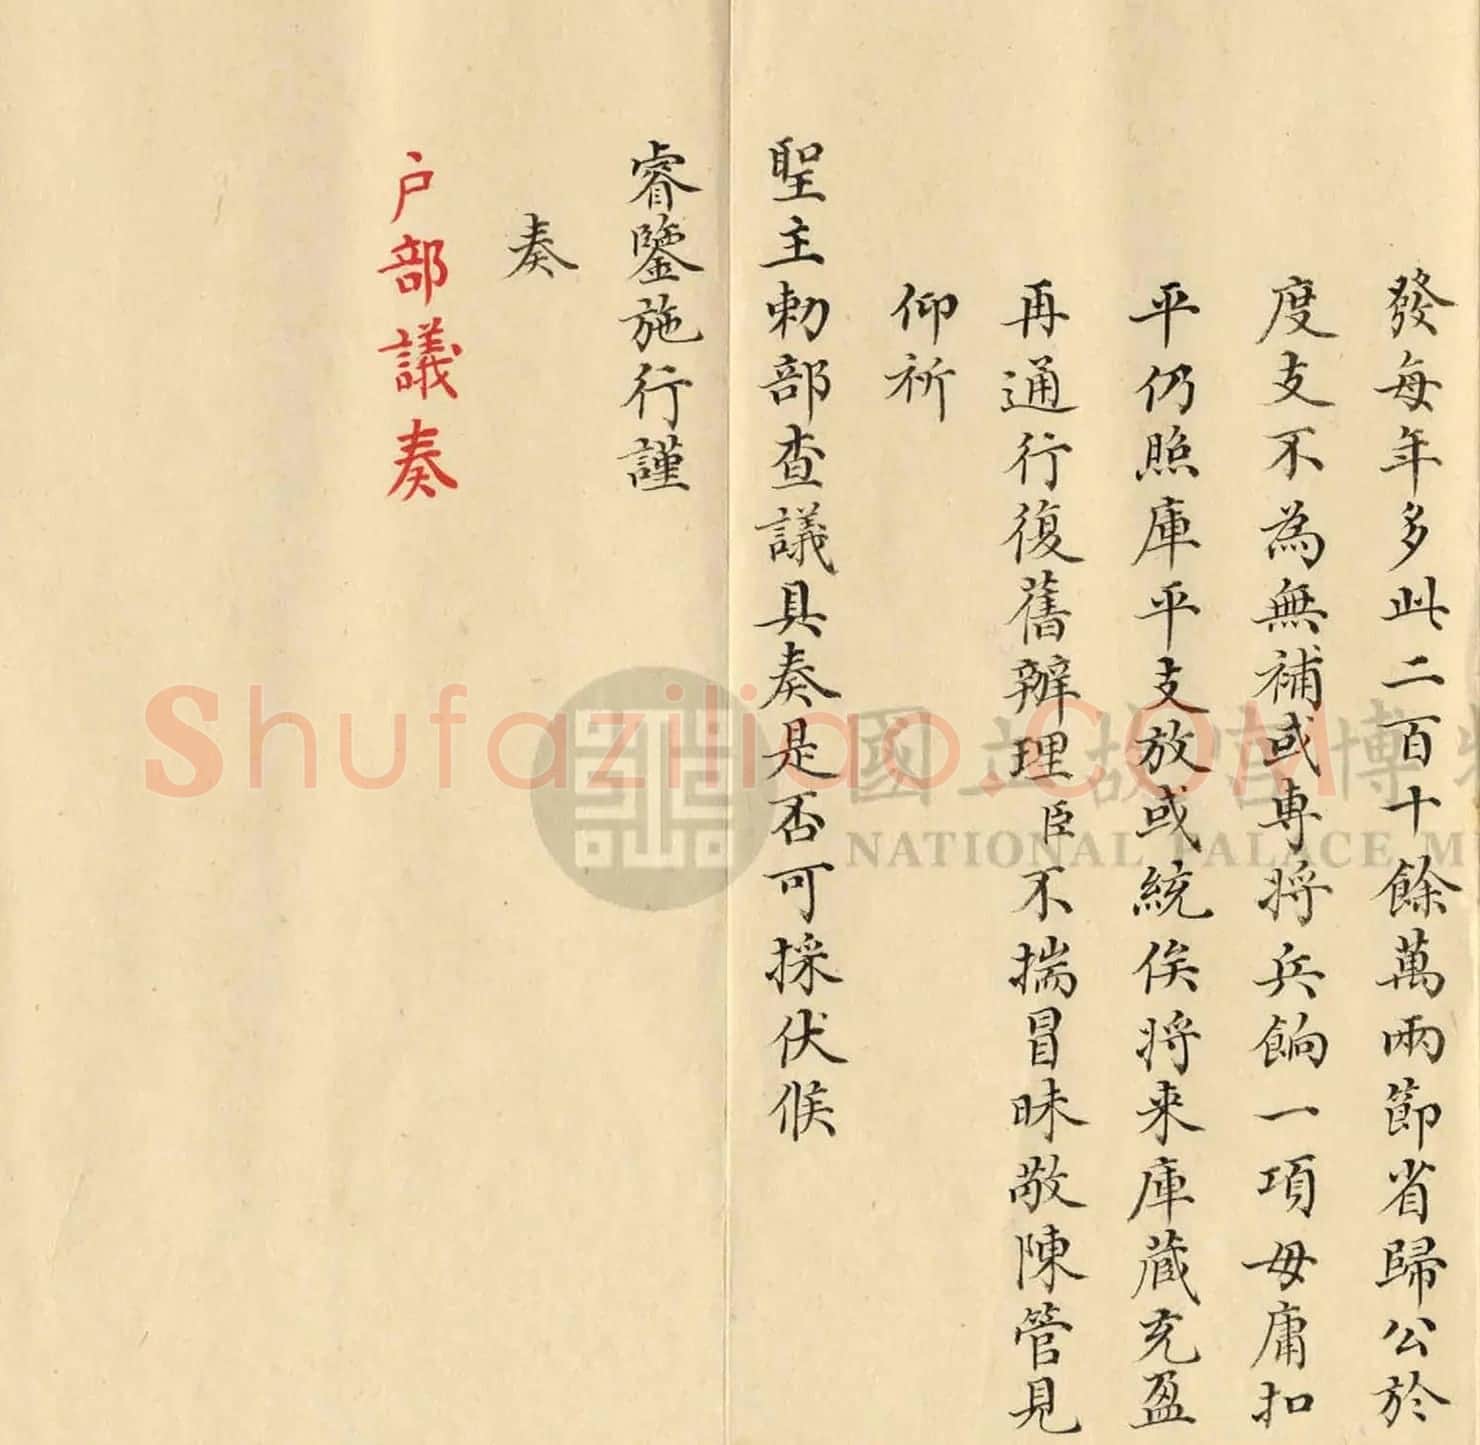 發每年多此二百十餘萬兩節省歸公於
度支不為無補或專將兵餉一項毋庸扣
平仍照庫平支放或統俟將来庫藏充盈
再通行復舊辦理臣不揣冒昧敬陳管見
仰祈
聖主勅部查議具奏是否可採伏候
睿鑒施行謹
奏
户部議奏
Shufaziliao.COM
國立故宮博物
NATIONAL PALACE M